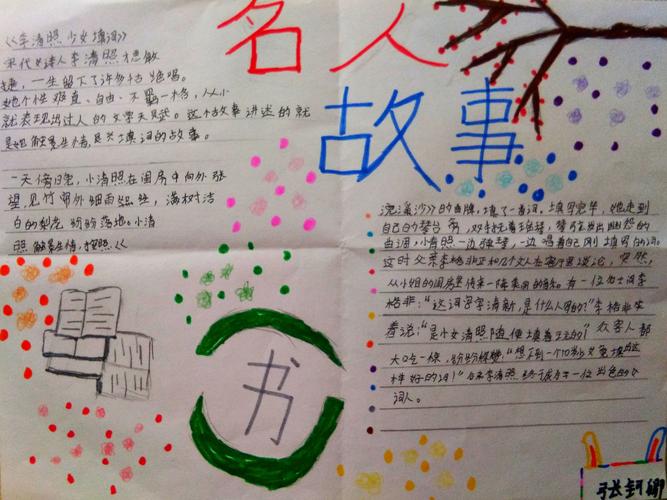 名人
故事
《李清照少女填词》
宋代女诗人李清照才思敏
捷，一生留下了许多千古绝唱。
她个性难直、自由、不羁一格，从小
就表现出过人的文学天赋。这个故事讲述的就
是她触景生情，是兴填词的故事。
一天傍晚，小清照在闺房中向外张
望，见竹帘外细雨丝丝，满树洁
白的梨花纷纷落地。小清
照触景生情，按照《
浣溪沙》的曲牌，填了一首词。填写完毕，她走到
自己的琴台旁，双手抚着琵琶，琴弦发出幽怨的
曲调，小清照一边弹琴，一边唱着自己刚填写的词。
这时父亲李格非正和几个文人在客厅里谈论，突然，
从小姐的闺房里传来一阵柔美的音乐。有一位力士问李
格非："这词写字清新，是什么人写的？"李格非笑
着说："是小女清照随便填着玩的！"众客人都
大吃一惊，纷纷称赞："想不到一个10岁少女竟填出这
样好的词！"后来李清照终于成为了一位出色的女
词人。
书